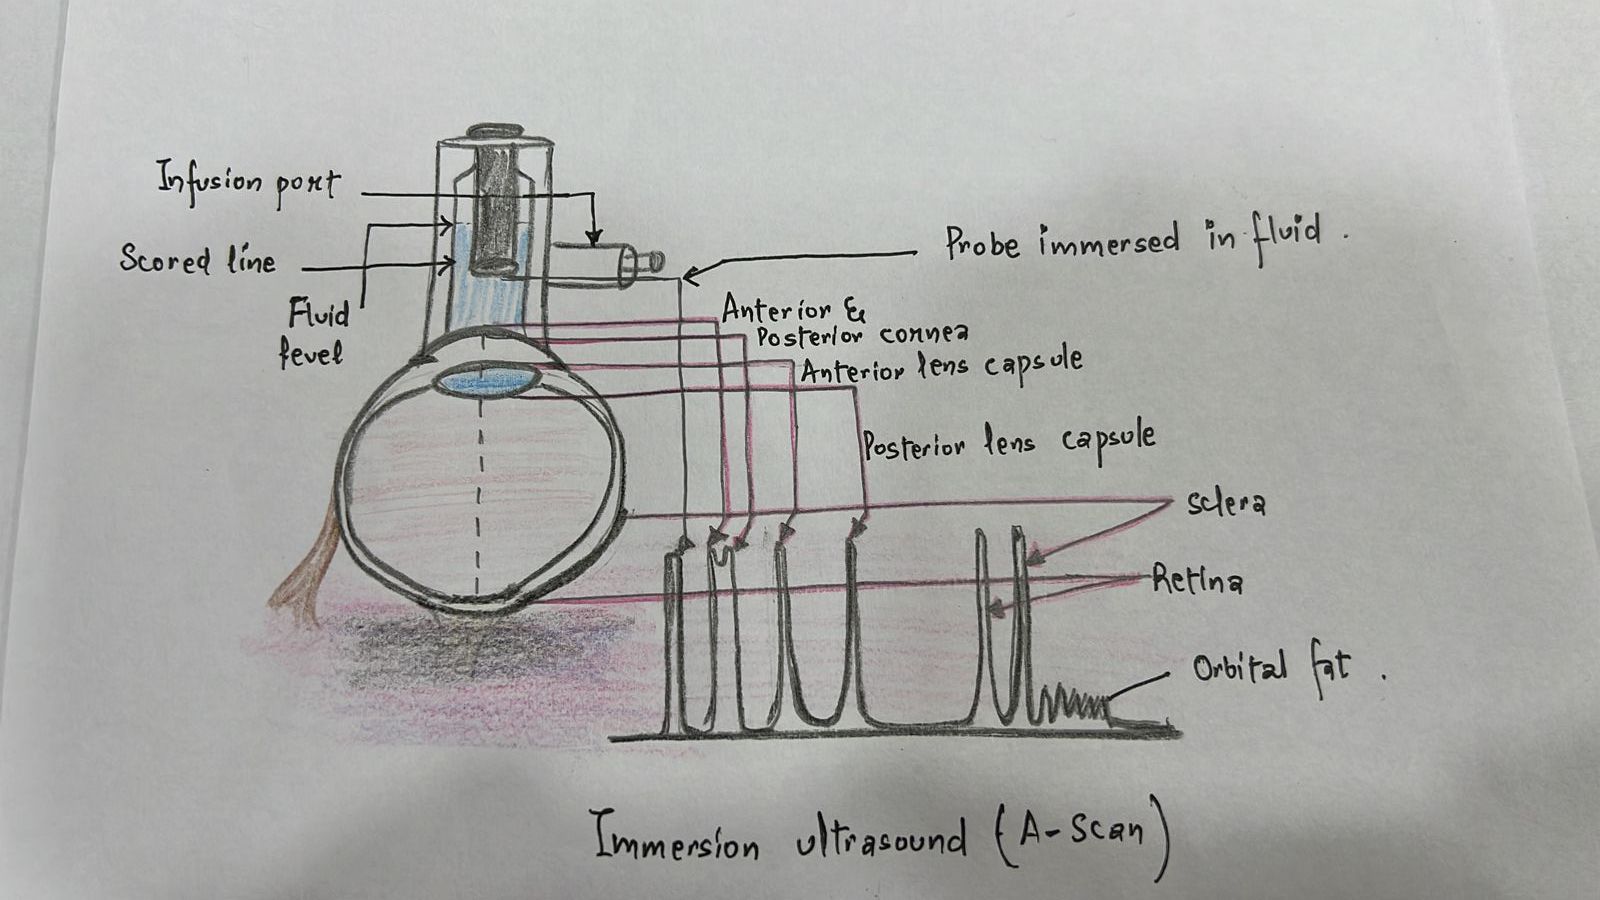 Infusion port
Scored line
Fluid
level
Probe immersed in fluid.
Anterior &
Posterior cornea
Anterior lens capsule
Posterior lens capsule
Sclera
Retina
Orbital fat.
Immersion ultrasound (A-Scan)